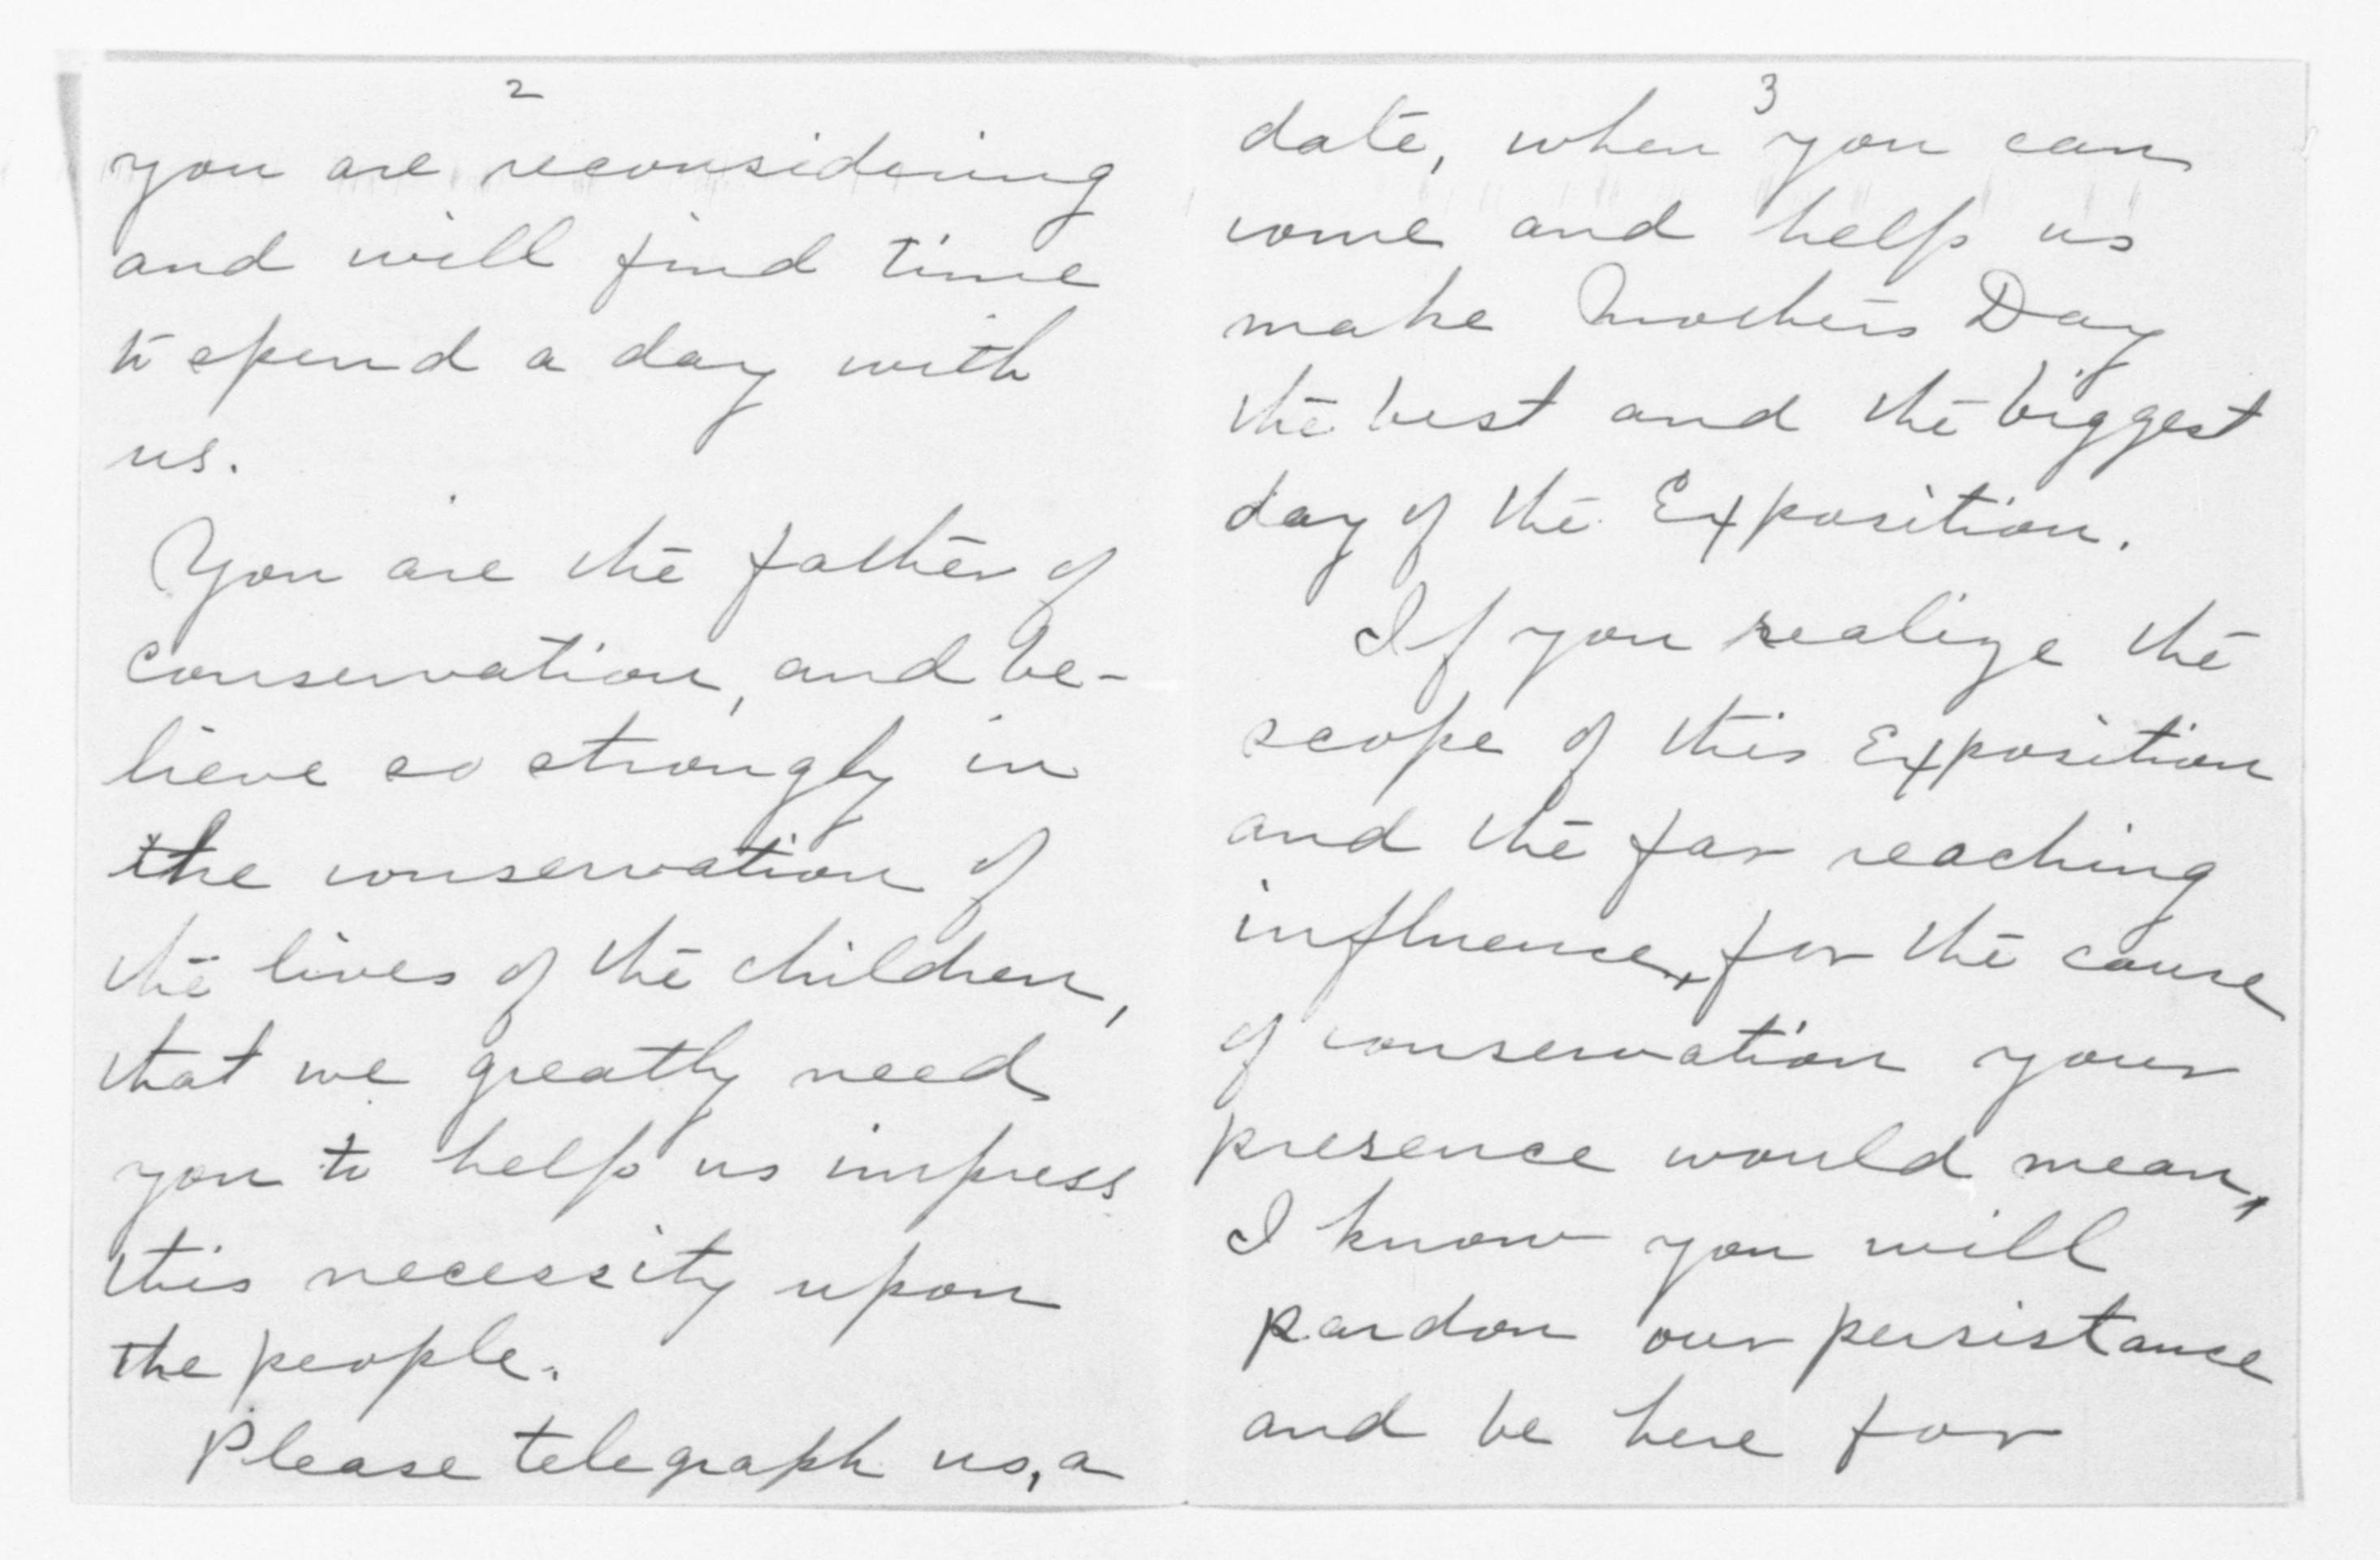 2
you are reconsidering
and will find time
to spend a day with
us.
You are the father of
conservation, and be-
lieve so strongly in
the conservation of
the lives of the children,
that we greatly need
you to help us impress
this necessity upon
the people.
Please telegraph us, a
3
date, when you can
come and help us
make Mothers Day
the best and the biggest
day of the Exposition.
If you realize the
scope of this Exposition
and the far reaching
influence, for the cause
of conservation your
presence would mean,
I know you will
pardon our persistance
and be here for